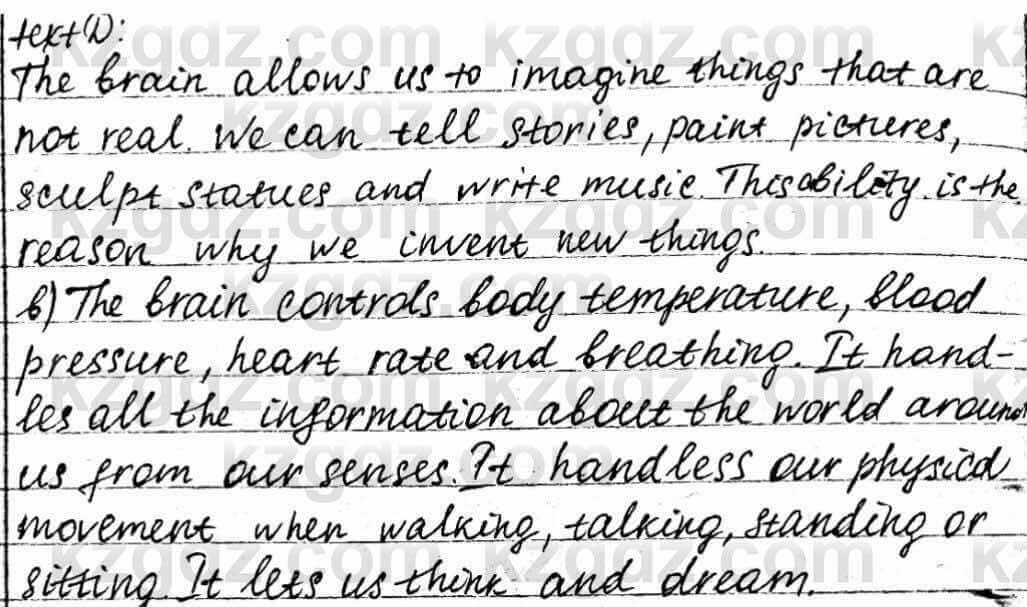 text D:
The brain allows us to imagine things that are
not real. We can tell stories, paint pictures,
sculpt statues and write music. This ability is the
reason why we invent new things.
b) The brain controls body temperature, blood
pressure, heart rate and breathing. It hand-
les all the information about the world around
us from our senses. It handless our physical
movement when walking, talking, standing or
sitting. It lets us think and dream.